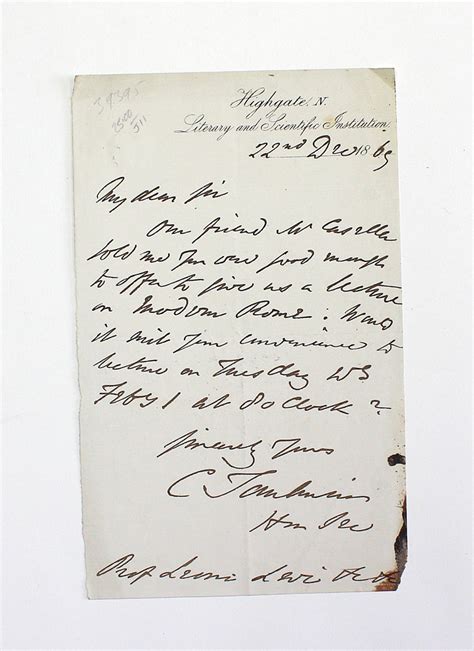 39395
2500
511
Highgate, N.
Literary and Scientific Institution.
22nd Dec 1869
My dear Sir
Our friend Mr Casella
told me you were good enough
to offer to give us a lecture
on Modern Rome: Would
it suit your convenience to
lecture on Tuesday
Feby 1 at 8 o'clock?
Sincerely Yours
C Tomlinson
Hon Sec
Prof Leone Levi